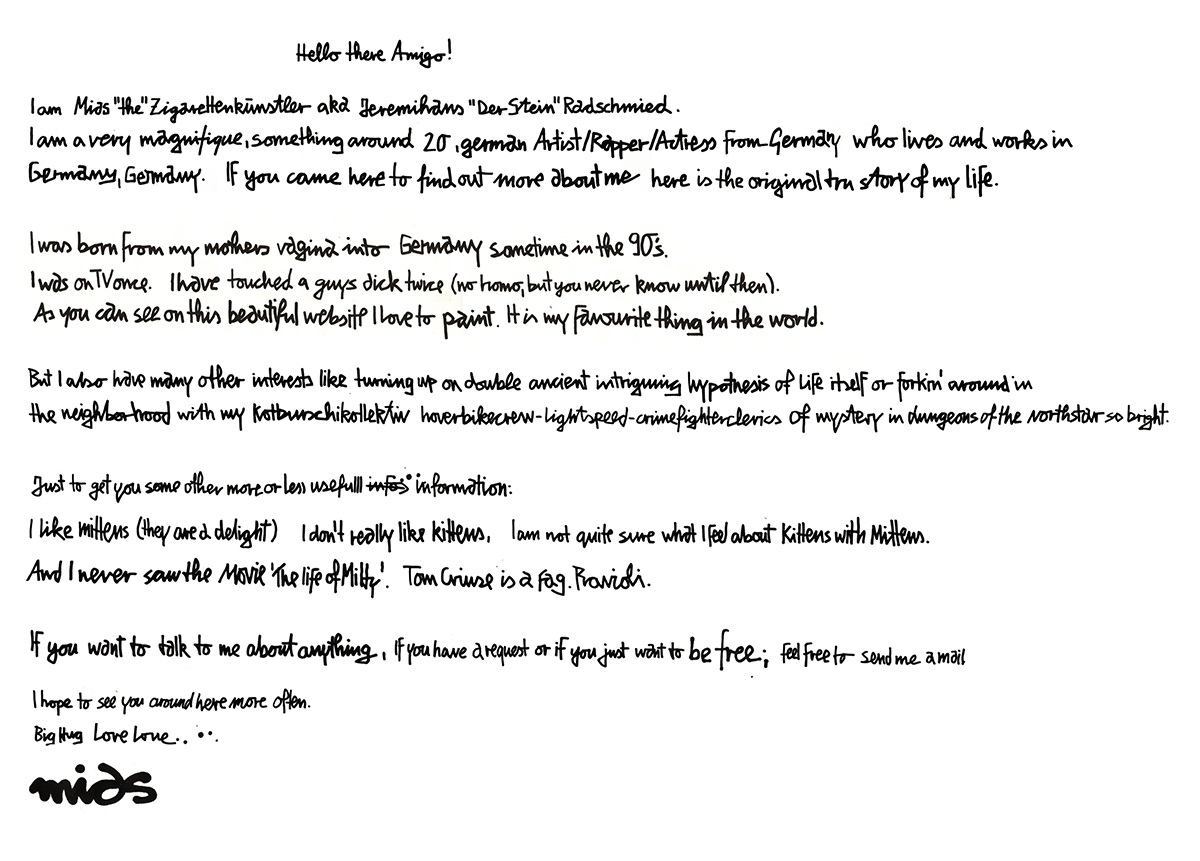 Hello there Amigo!
I am Mias "the" Zigarettenkünstler aka Jeremihans "Der Stein" Radschmied.
I am a very magnifique, something around 20, german Artist/Rapper/Actress from Germany who lives and works in
Germany, Germany. If you came here to find out more about me here is the original tru story of my life.
I was born from my mothers vagina into Germany sometime in the 90's.
I was on TV once. I have touched a guys dick twice (no homo, but you never know until then).
As you can see on this beautiful website I love to paint. It is my favourite thing in the world.
But I also have many other interests like turning up on double ancient intriguing hypothesis of life itself or forkin' around in
the neighborhood with my Kotburschikollektiv hoverbikecrew-lightspeed-crimefighterclerics of mystery in dungeons of the northstar so bright.
Just to get you some other more or less usefull infos information:
I like mittens (they are a delight) I don't really like kittens, I am not quite sure what I feel about Kittens with Mittens.
And I never saw the Movie 'The life of Milfy'. Tom Criuse is a fag.
If you want to talk to me about anything, If you have a request or if you just want to be free; feel free to send me a mail
I hope to see you around here more often.
Big Hug Love Love.. ..
mias